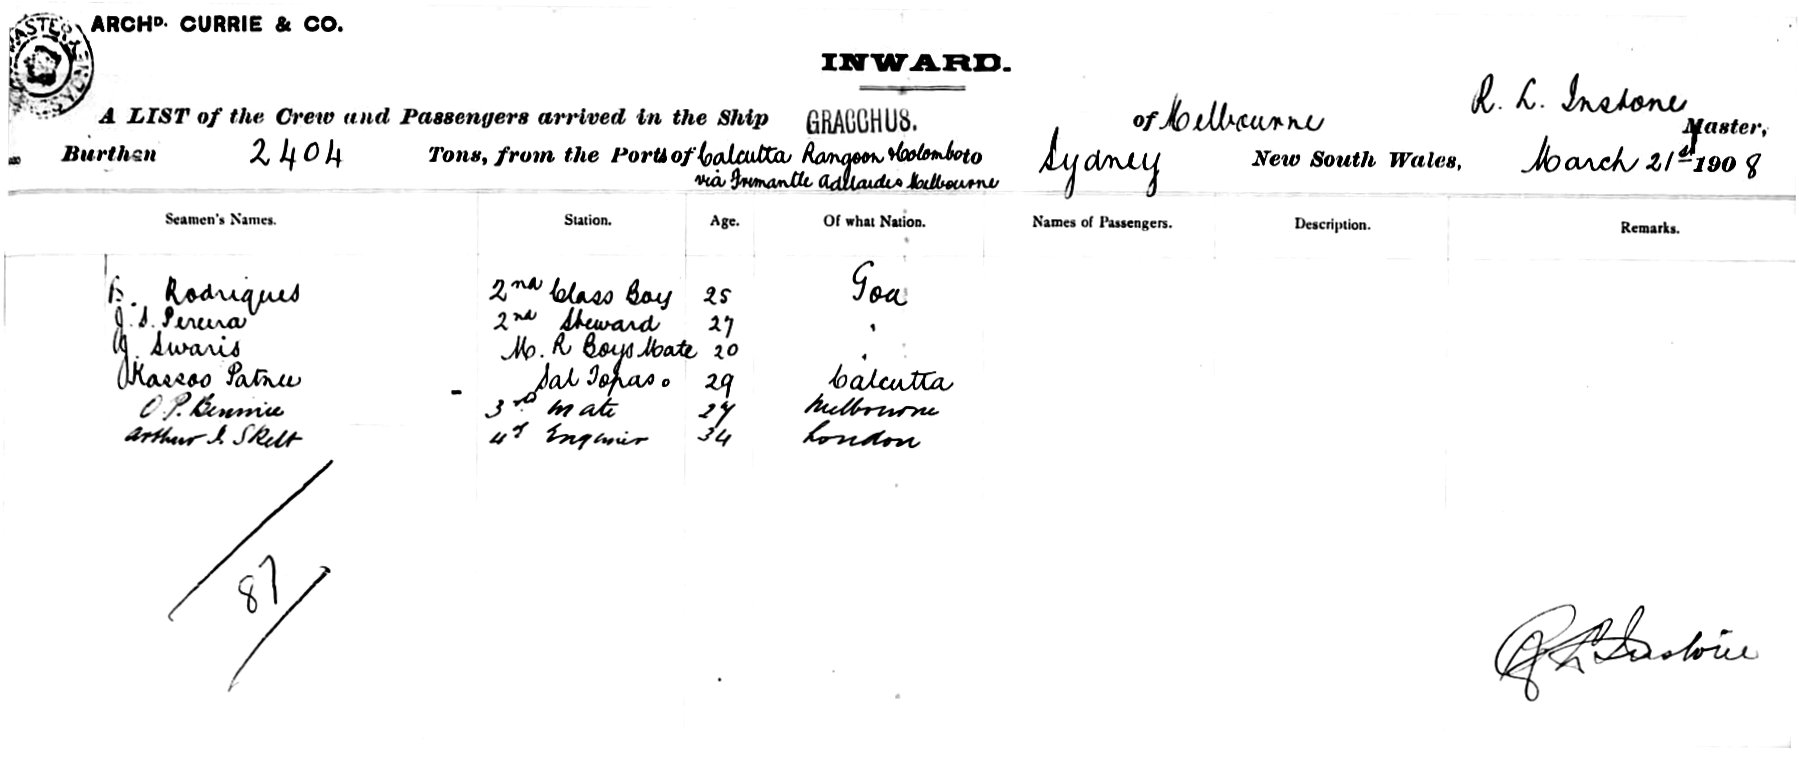 ARCHD. CURRIE & CO.
INWARD.
R. L. Instone
A LIST of the Crew and Passengers arrived in the Ship GRACCHUS. of Melbourne Master,
Burthen 2404 Tons, from the Ports of Calcutta Rangoon & Colombo to Sydney New South Wales, March 21st 1908
via Fremantle Adelaide & Melbourne
Seamen's Names. Station. Age. Of what Nation. Names of Passengers. Description. Remarks.
B. Rodrigues 2nd Class Boy 25 Goa
J. S. Pereira 2nd Steward 27 "
J. Swaris M. R Boys Mate 20 "
Kassoo Patnee - Sal Topas. 29 Calcutta
O. P. Bennie 3rd Mate 27 Melbourne
Arthur J. Skelt 4th Engineer 34 London
87
R L Instone